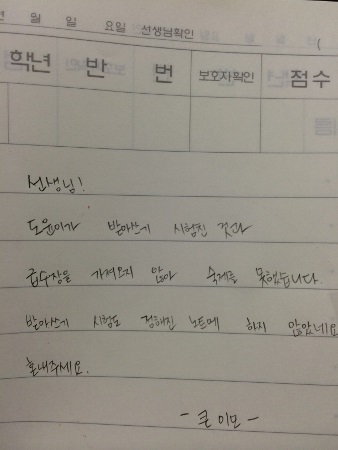 년 월 일 요일 선생님확인 (
학년 반 번 보호자확인 점수
선생님!
도윤이가 받아쓰기 시험친 것과
급수장을 가져오지 않아 숙제를 못했습니다.
받아쓰기 시험도 정해진 노트에 하지 않았네요
혼내주세요.
- 큰 이모 -